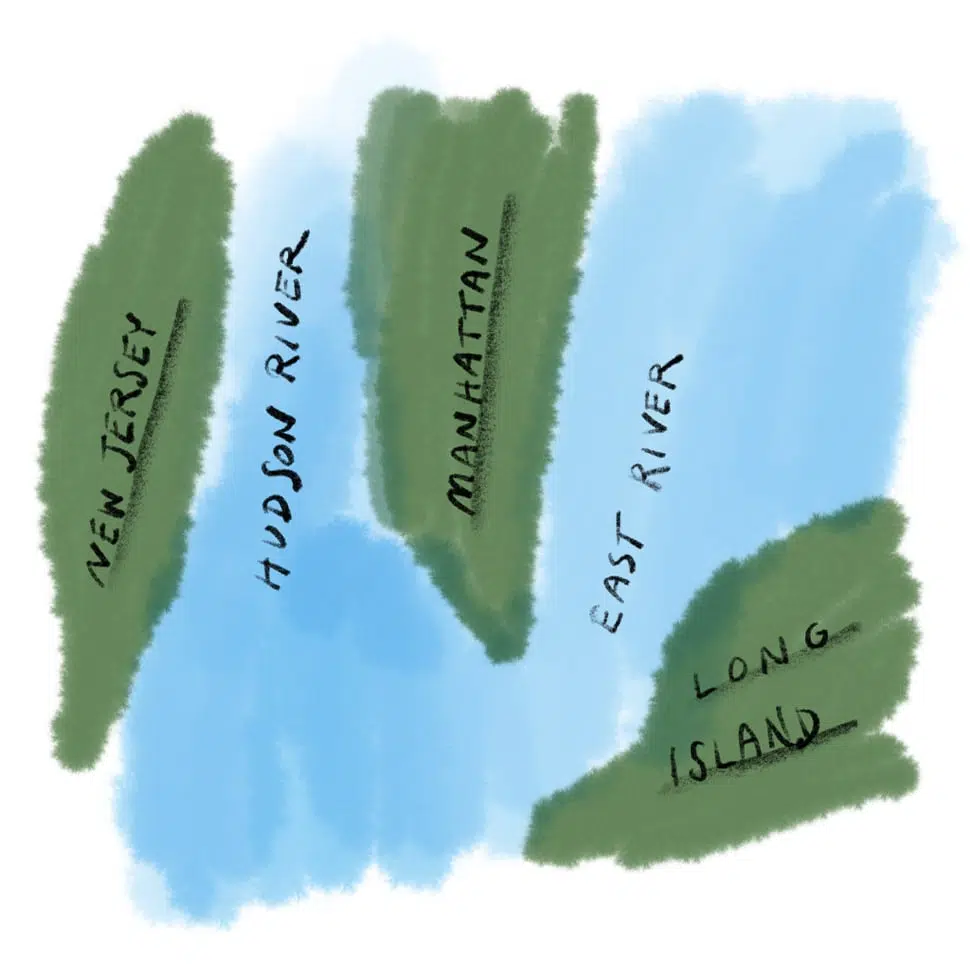 NEW JERSEY
HUDSON RIVER
MANHATTAN
EAST RIVER
LONG
ISLAND